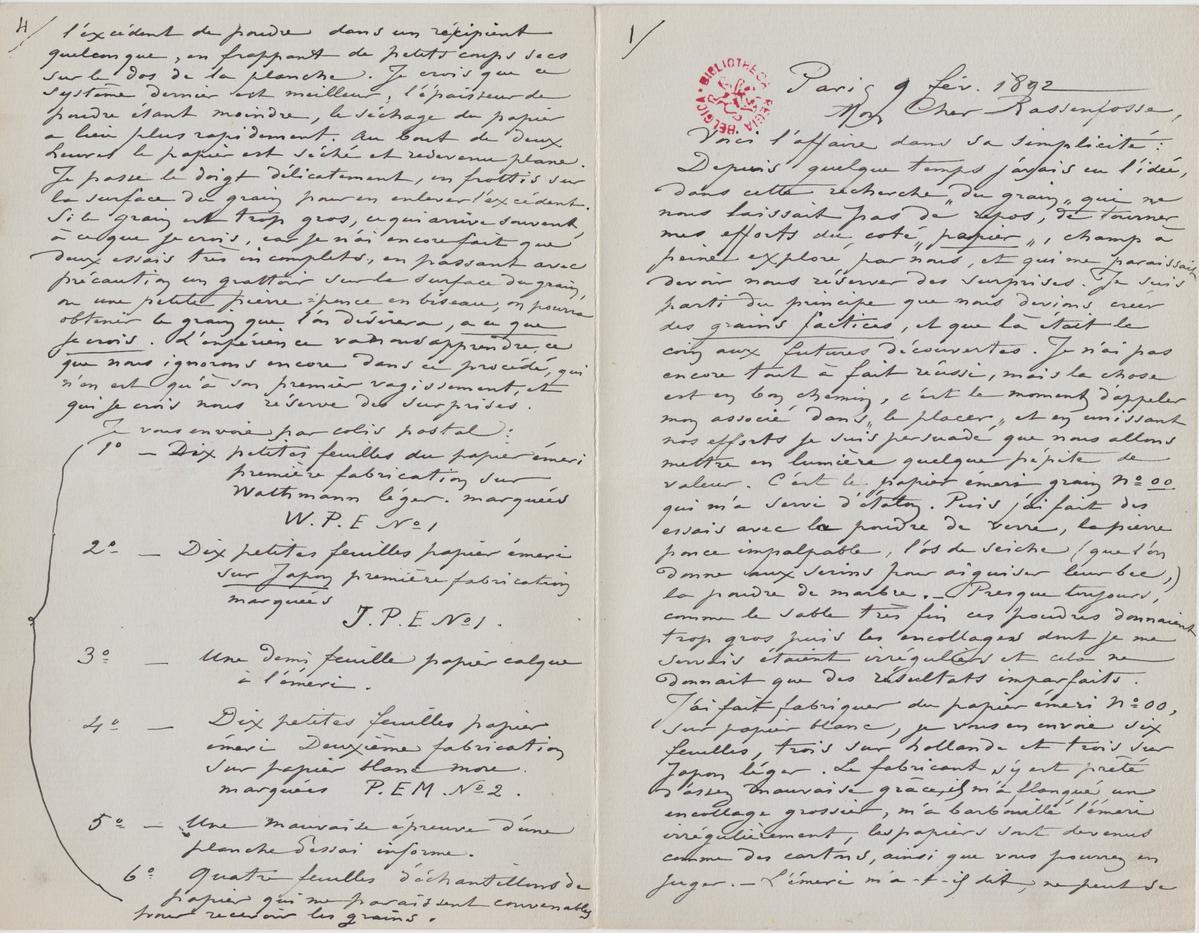 4/
l'excédent de poudre dans un récipient
quelconque, en frappant de petits coups secs
sur le dos de la planche. Je crois que ce
système dernier est meilleur, l'épaisseur de
poudre étant moindre, le séchage du papier
a lieu plus rapidement. Au bout de deux
heures le papier est séché et redevenu plane.
Je passe le doigt délicatement, en frottis sur
la surface du grain pour en enlever l'excédent.
Si le grain est trop gros, ce qui arrive souvent,
à ce que je crois, car je n'ai encore fait que
deux essais très incomplets, en passant avec
précaution un grattoir sur la surface du grain,
ou une petite pierre-ponce en biseau, on pourra
obtenir le grain que l'on désirera, a ce que
je crois. L'expérience va nous apprendre, ce
que nous ignorons encore dans ce procédé, qui
n'en est qu'à son premier vagissement, et
qui je crois nous réserve des surprises.
Je vous envoie par colis postal :
1º – Dix petites feuilles du papier émeri
première fabrication sur
Wathmann léger. marquées
W. P. E Nº 1
2º – Dix petites feuilles papier émeri
sur Japon première fabrication
marquées
J. P. E. Nº 1.
3º – Une demi feuille papier calque
à l'émeri.
4º – Dix petites feuilles papier
émeri Deuxième fabrication
sur papier blanc more.
marquées P. EM. Nº 2.
5º – Une mauvaise épreuve d'une
planche d'essai informe.
6º Quatre feuilles d'échantillons de
papier qui me paraissent convenables
pour recevoir les grains.
1/
BIBLIOTHECA REGIA BELGICA
Paris 9 fév. 1892
Mon Cher Rassenfosse,
Voici l'affaire dans sa simplicité :
Depuis quelque temps j'avais eu l'idée,
dans cette recherche „du grain„ qui ne
nous laissait pas de repos, de tourner
mes efforts du coté „papier„, champ à
peine exploré par nous, et qui me paraissait
devoir nous réserver des surprises. Je suis
parti du principe que nous devions créer
des grains factices, et que là était le
coin aux futures découvertes. Je n'ai pas
encore tout à fait réussi, mais la chose
est en bon chemin, c'est le moment d'appeler
mon associé dans „le placer„ et en unissant
nos efforts je suis persuadé que nous allons
mettre en lumière quelque pépite de
valeur. C'est le papier émeri grain nº 00
qui m'a servi d'étalon. Puis j'ai fait des
essais avec la poudre de verre, la pierre
ponce impalpable, l'os de seiche (que l'on
donne aux serins pour aiguiser leur bec,)
la poudre de marbre. – Presque toujours,
comme le sable très fin ces poudres donnaient
trop gros, puis les encollages dont je me
servais étaient irréguliers et cela ne
donnait que des résultats imparfaits.
J'ai fait fabriquer du papier émeri nº 00,
sur papier blanc, je vous en envoie six
feuilles, trois sur hollande et trois sur
Japon léger. Le fabricant s'y est prêté
d'assez mauvaise grâce, il m'a flanqué un
encollage grossier, m'a barbouillé l'émeri
irrégulièrement, les papiers sont devenus
comme des cartons, ainsi que vous pourrez en
juger. – L'émeri m'a-t-il dit, ne peut se